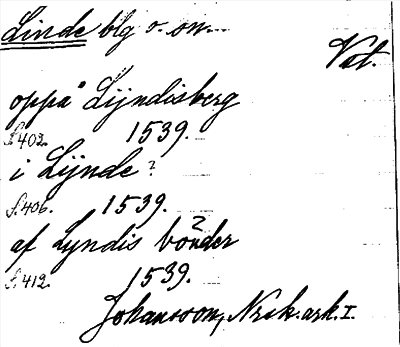 Linde blg o. sn.
Vst.
oppå Lijndisberg
s. 402. 1539.
i Lijnde?
s. 406. 1539.
af Lyndis bönder
s. 412. 1539.
Johansson, Nrsk. ark. I.